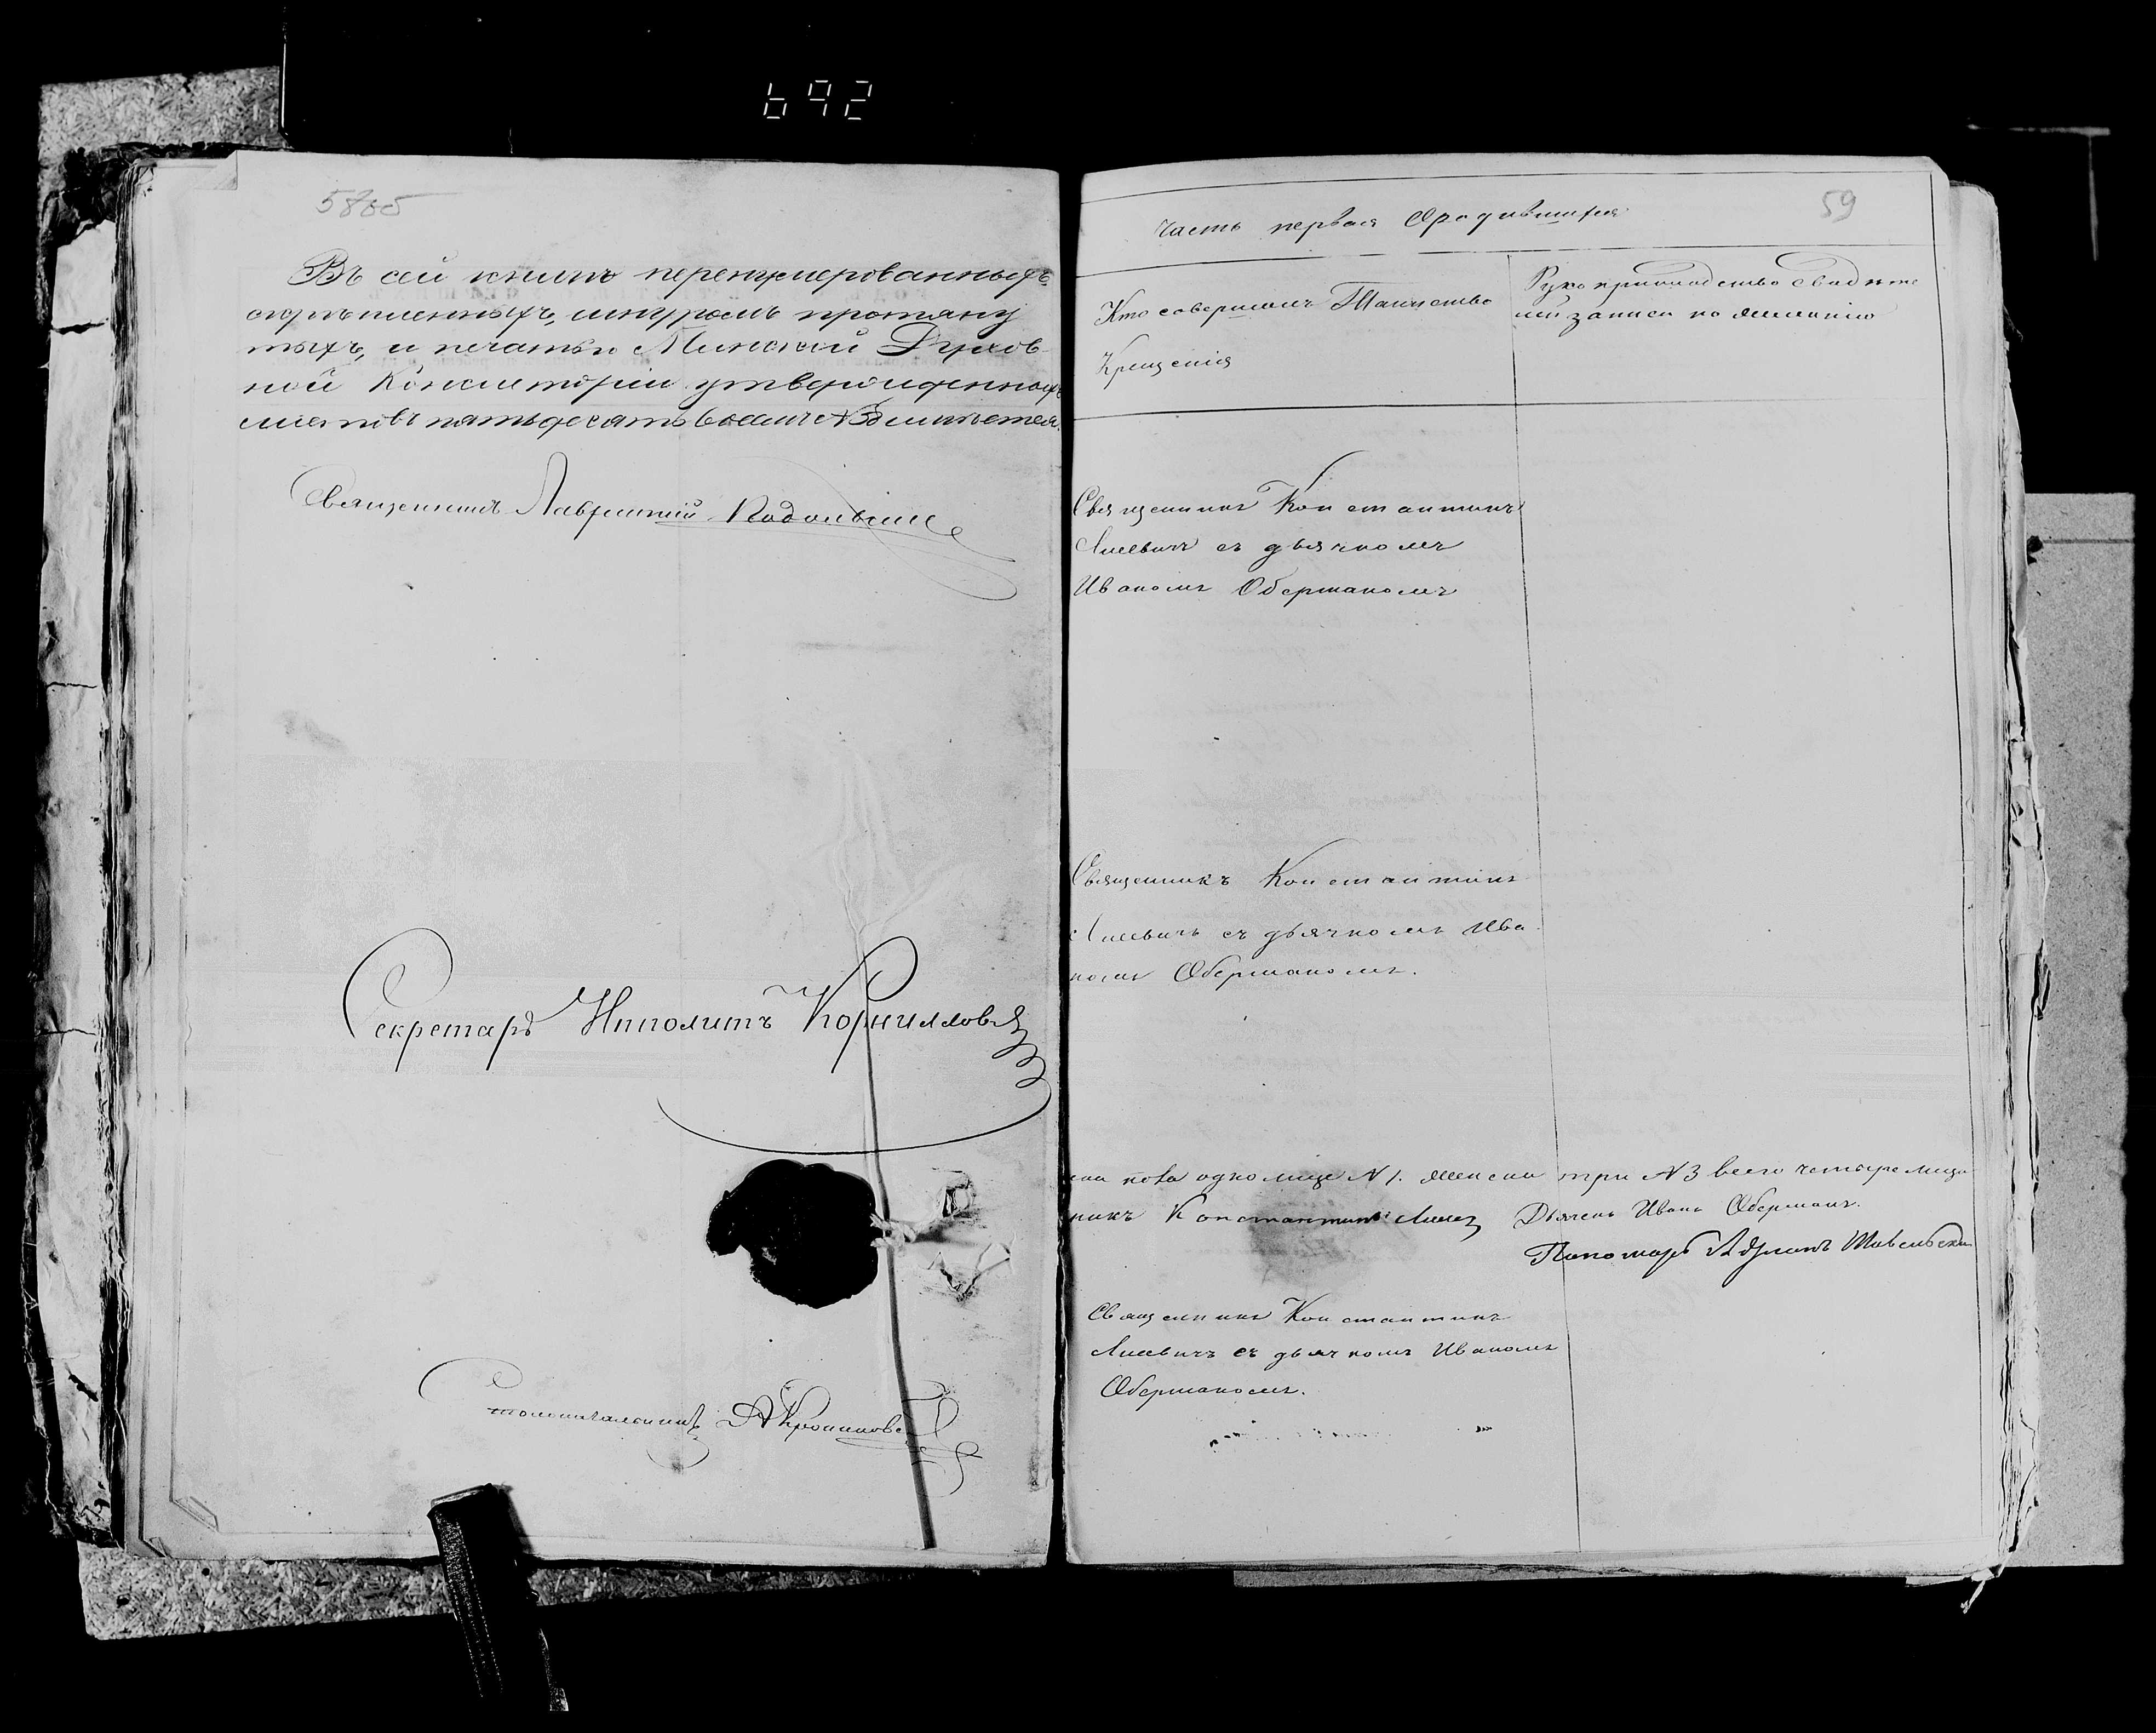 692
Въ сей книгѣ перенумерованныхъ
скрѣпленныхъ, шнуромъ протяну
тыхъ, и печатью Минской Духов
ной Консисторіи утвержденныхъ
листовъ пятьдесятъ восемь №58 имѣется.
Священникъ Лаврентій
Секретарь Ипполитъ Корнилловъ
Столоначальникъ
59
Часть первая О родившихся
Кто совершалъ Таинство
Крещенія
Рукоприкладство свидѣте
лей записи по желанію
Священникъ Константинъ
Лисевичъ съ дьячкомъ
Иваномъ Оберманомъ
Священникъ Константинъ
Лисевичъ съ дьячкомъ Ива
номъ Оберманомъ.
пола одно лице №1. женска три №3 всего четыре лица
никъ Константинъ Дьячекъ Иванъ Оберманъ.
Пономарь
Священникъ Константинъ
Лисевичъ съ дьячкомъ Иваномъ
Оберманомъ.